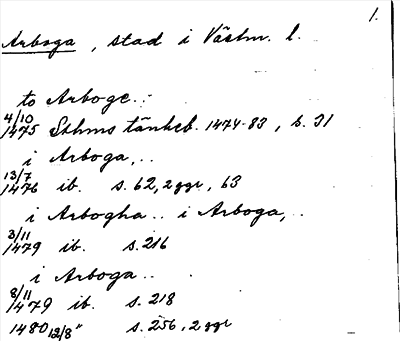 1.
Arboga, stad i Västm. l.
to Arboge..
4/10 1475 Sthms tänkeb. 1474-83, s. 31
i Arboga,..
13/7 1476 ib. s. 62, 2 ggr, 63
i Arbogha.. i Arboga,..
3/11 1479 ib. s. 216
i Arboga..
8/11 1479 ib. s. 218
1480 12/8 " s. 256, 2 ggr